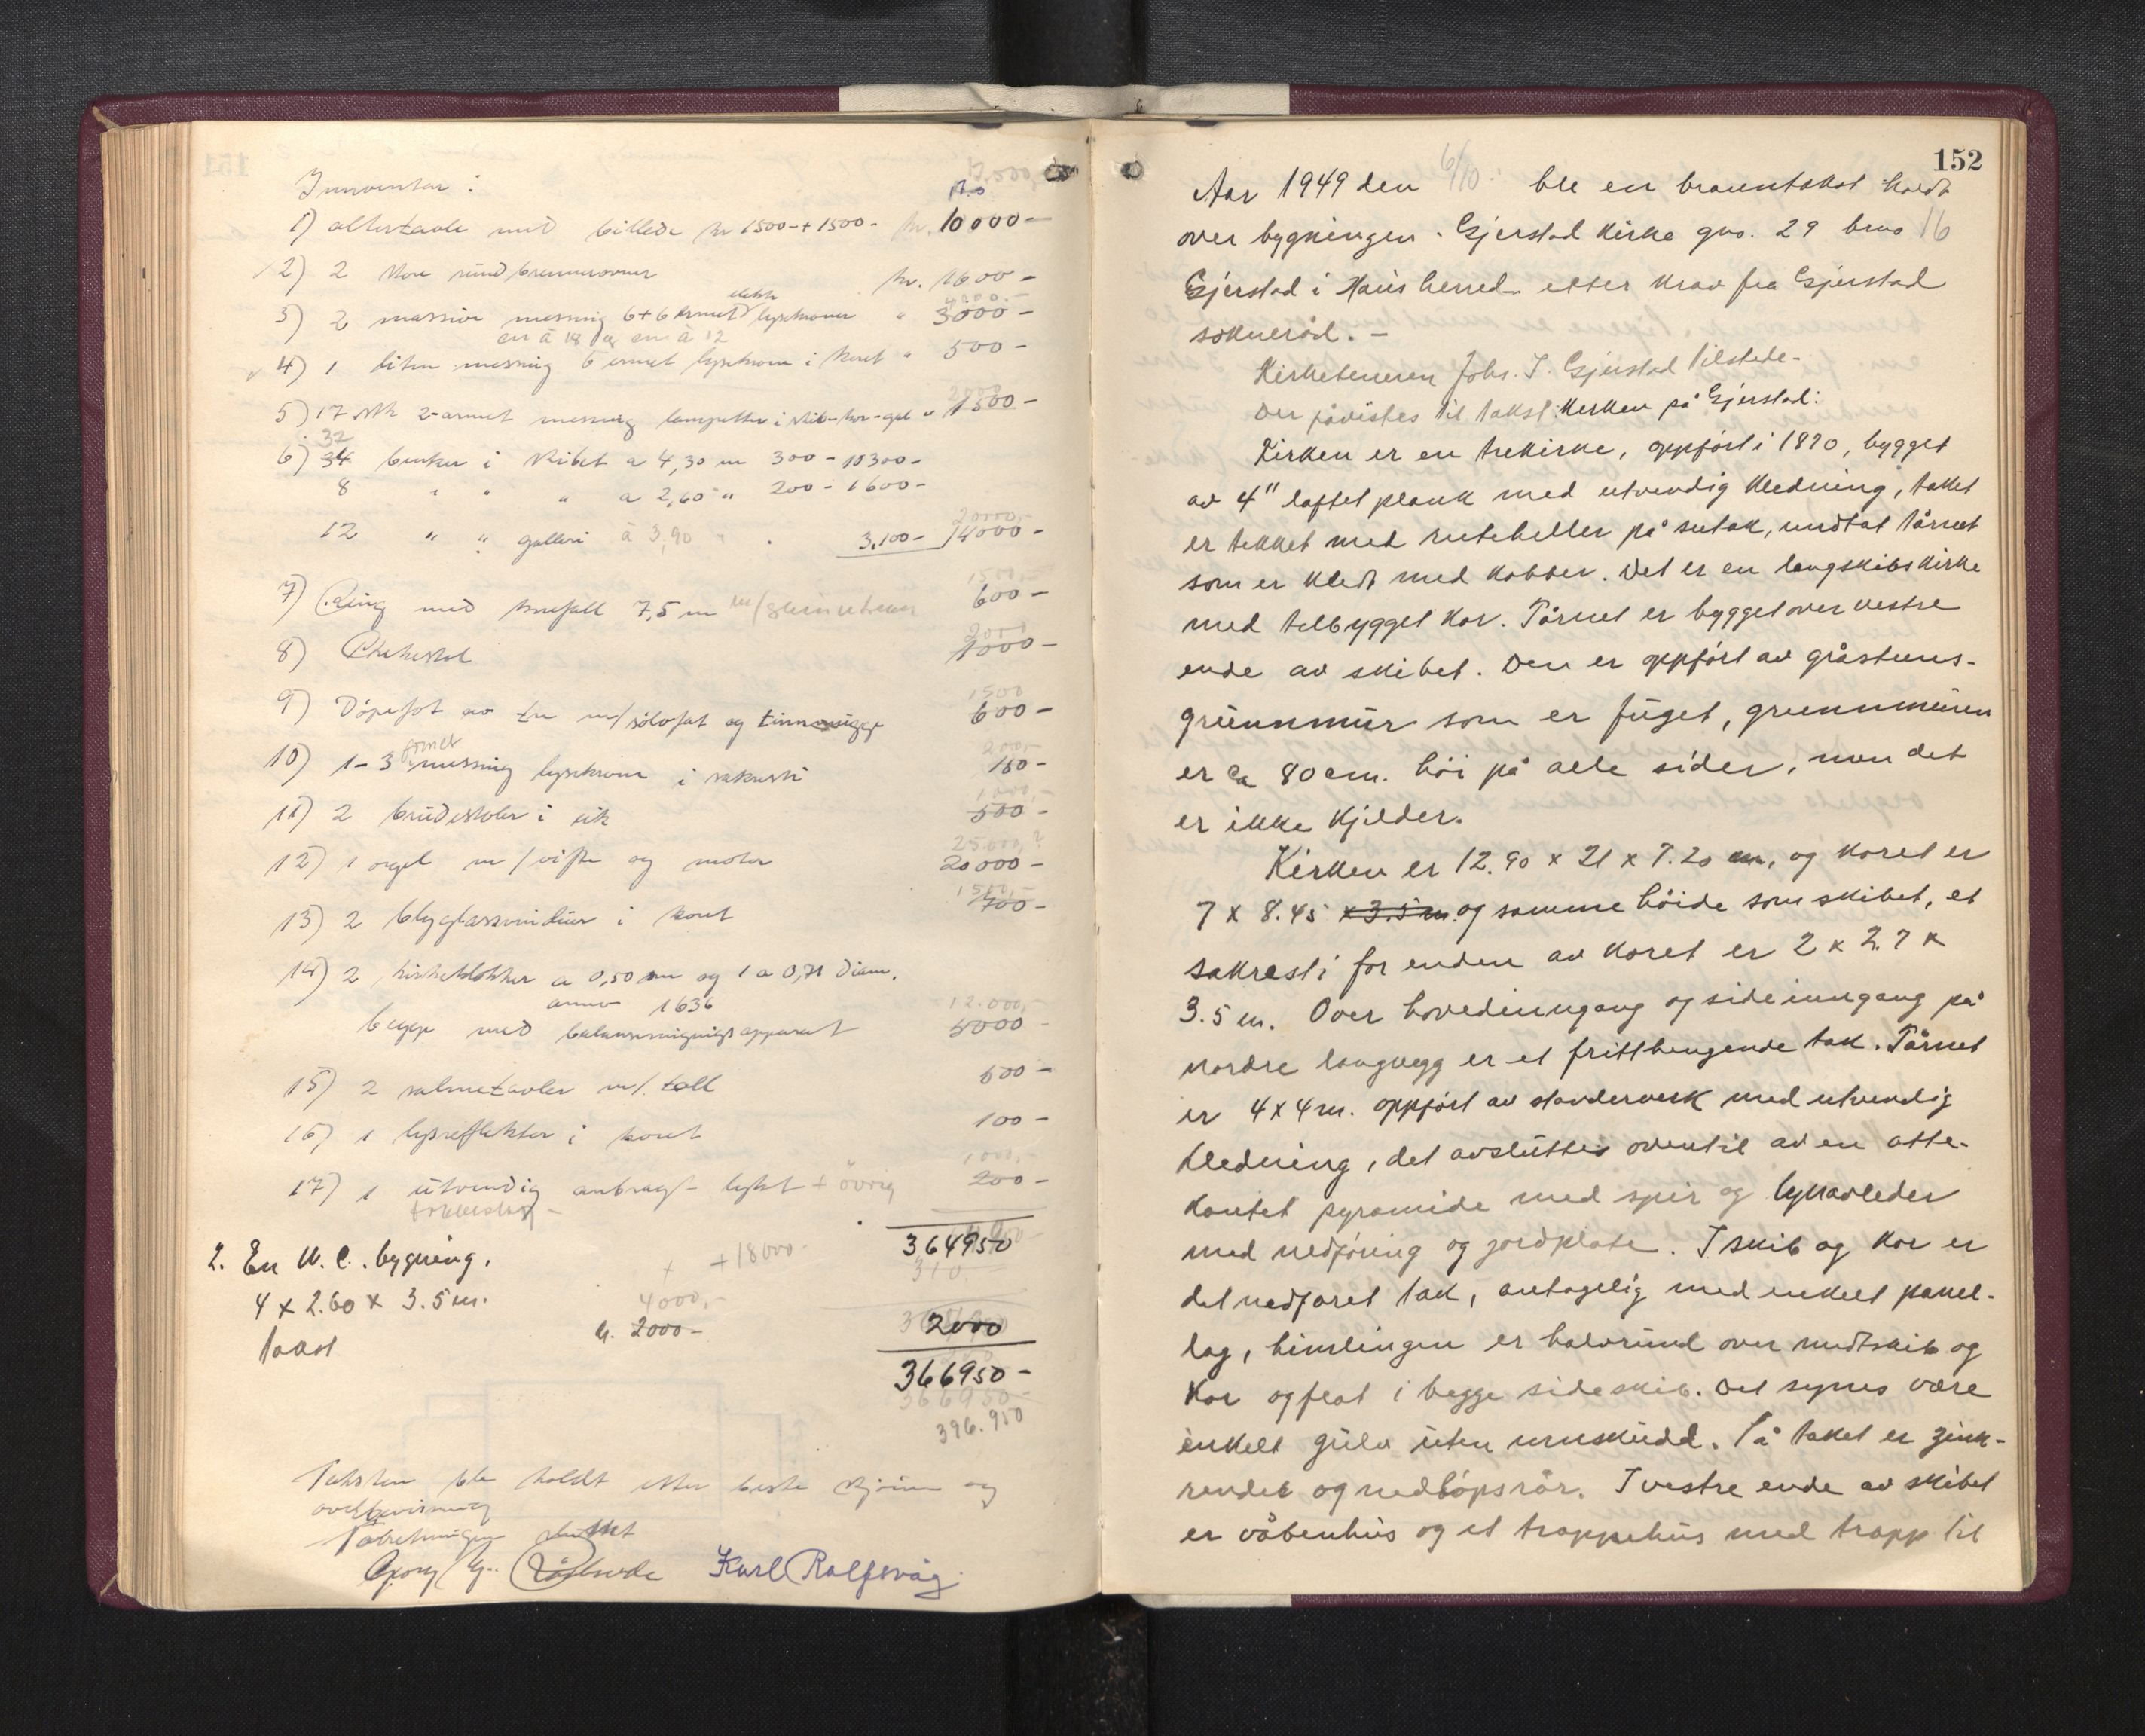 Innventar:
1) altertavle med billede kr 1500-+1500- kr. 10000-
2) 2 store rundbrennerovner kr. 1600-
3) 2 massive messing 6+6 armet elektr lysekroner " 3000-
en à 18 og en à 12
4) 1 liten messing 6 armet lysekrone i koret " 500-
5) 17 stk 2-armet messing lampetter i skib-kor-gal " 1500-
32
6) 34 benker i skibet a 4,30 m 300- 10300-
8 " " " a 2,60 " 200- 1600-
20000,-
12 " " galleri à 3,90 " . 3,100- 14000-
1500
7) Ring med knefall 7,5 m 600-
2000
8) Prekestol 1000-
1500
9) Døpefot av tre m/sølvfat og tinn 600-
10) 1-3 armet messing lysekrone i sakresti 150-
1000,-
11) 2 brudestoler i eik 500-
25.000,?
12) 1 orgel m/vifte og motor 20000-
1500,-
13) 2 blyglassvinduer i koret 700-
14) 2 kirkeklokker a 0,50 m og 1 a 0,71 diam.
anno 1636 12.000,-
begge med balanseringningsapparat 5000-
15) 2 salmetavler m/. tall 600-
16) 1 lysreflektor i koret 100-
1000,-
17) 1 utvendig anbragt lykt + øvrig 200-
364950
2. En W.C. bygning. + 18000-
4 x 2.60 x 3.5 m. 4000,-
takst kr. 2000- 2000
366950-
366950-
396.950
Taksten ble holdt etter beste skjønn og
overbevisning
Forretningen sluttet
Georg Karl Rolfsvåg.
152
Aar 1949 den 6/10. ble en branntakst holdt
over bygningen. Gjerstad Kirke gno. 29 bno 16
Gjerstad i Haus herred etter krav fra Gjerstad
sokneråd. -
Kirketeneren Johs. J. Gjerstad tilstede-
Der påvistes til takst: Kirken på Gjerstad:
Kirken er en trekirke, oppført i 1870, bygget
av 4" laftet plank med utvendig kledning, taket
er tekket med ruteheller på sutak, undtat tårnet
som er kledt med kobber. Det er en langskibskirke
med tilbygget kor. Tårnet er bygget over vestre
ende av skibet. Den er oppført av gråsteins-
grunnmur som er fuget, grunnmuren
er ca 80 cm. høi på alle sider, men det
er ikke kjelder.
Kirken er 12.90 x 21 x 7.20 m, og koret er
7 x 8.45 x 3.5 m. og samme høide som skibet, et
sakresti for enden av koret er 2 x 2.7 x
3.5 m. Over hovedinngang og sideinngang på
nordre langvegg er et fritthengende tak. Tårnet
er 4 x 4 m. oppført av standerverk med utvendig
kledning, det avsluttes oventil av en otte-
kantet pyramide med spir og lynavleder
med nedføring og jordplate. I skib og kor er
det nedforet tak, antagelig med enkelt panel-
lag, himlingen er halvrund over midtskib og
kor og flat i begge sideskib. Det synes være
enkelt gulv uten urnskudd. På taket er zink-
render og nedløpsrør. I vestre ende av skibet
er våbenhus og et trappehus med trapp til